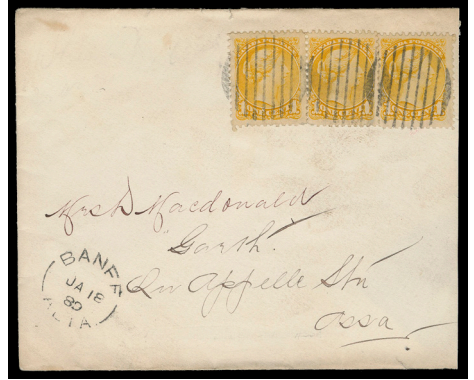 Mrs D Macdonald
Garth.
Qu Appelle Stn
Assa.
BANFF
JA 18
89
ALTA.